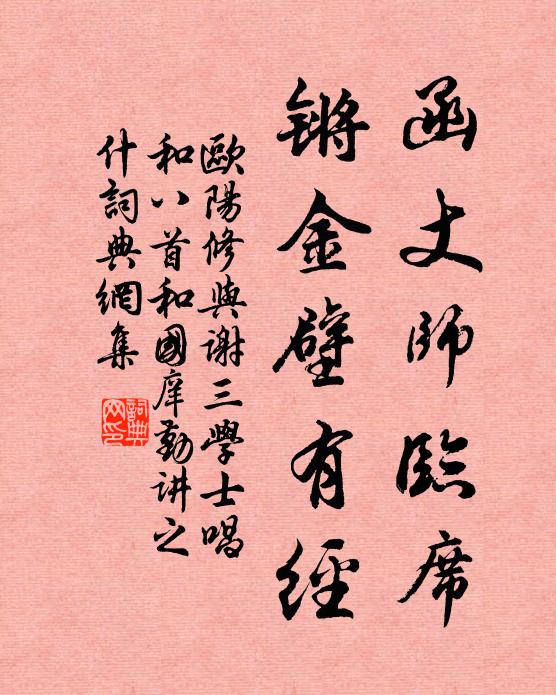 函丈師臨席
锵金壁有經
歐陽修與謝三學士唱
和八首和國庠勤讲之
什詞典網集
詞典
网印